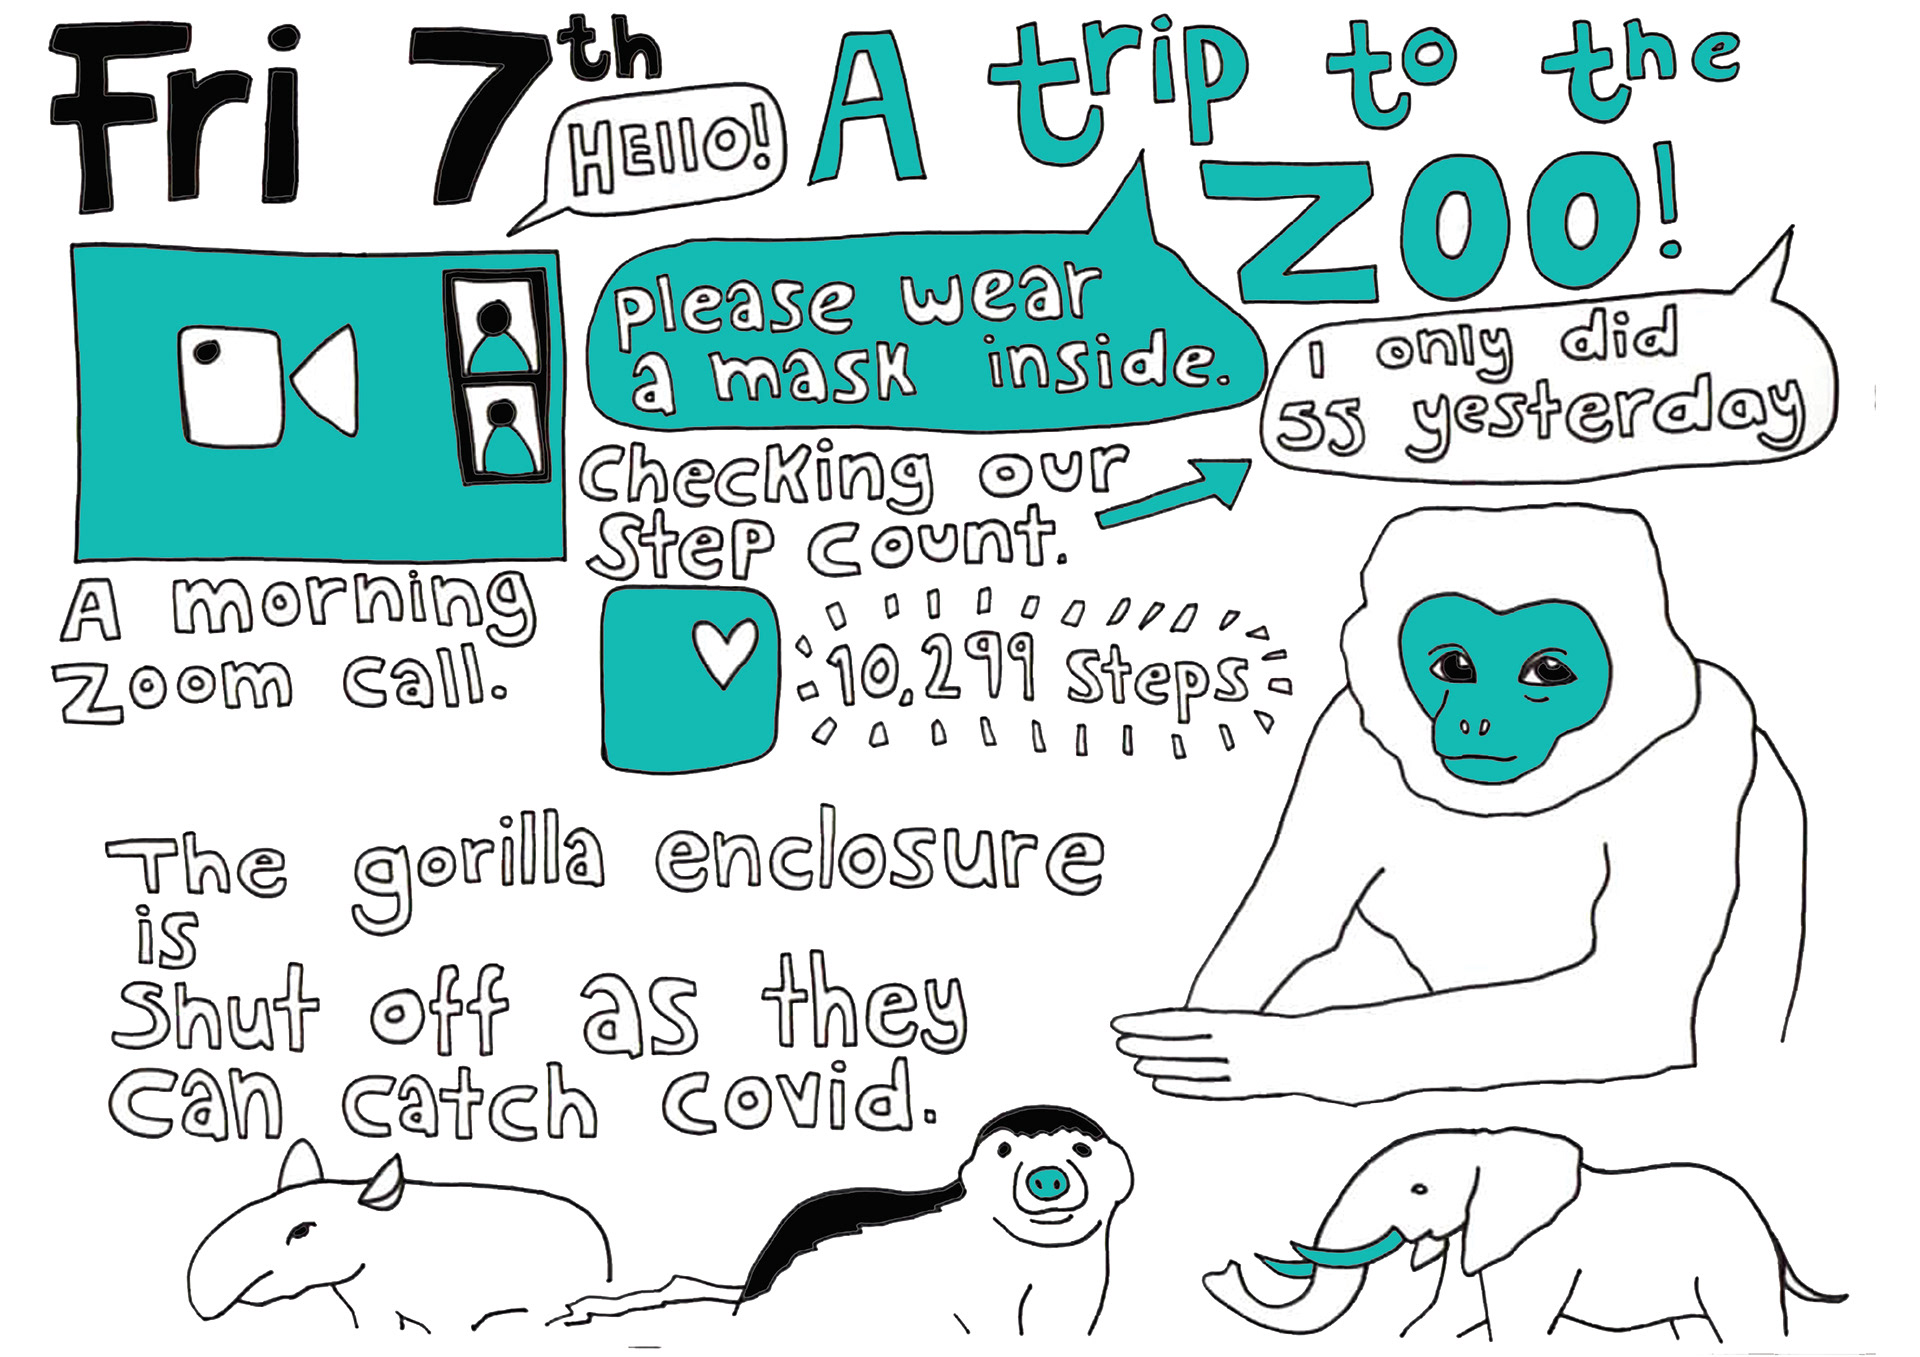 Fri 7th
A trip to the
ZOO!
HEllO!
please wear
a mask inside.
I only did
55 yesterday
Checking our
Step count.
10,299 Steps
A morning
Zoom call.
The gorilla enclosure
is
Shut off as they
can catch covid.